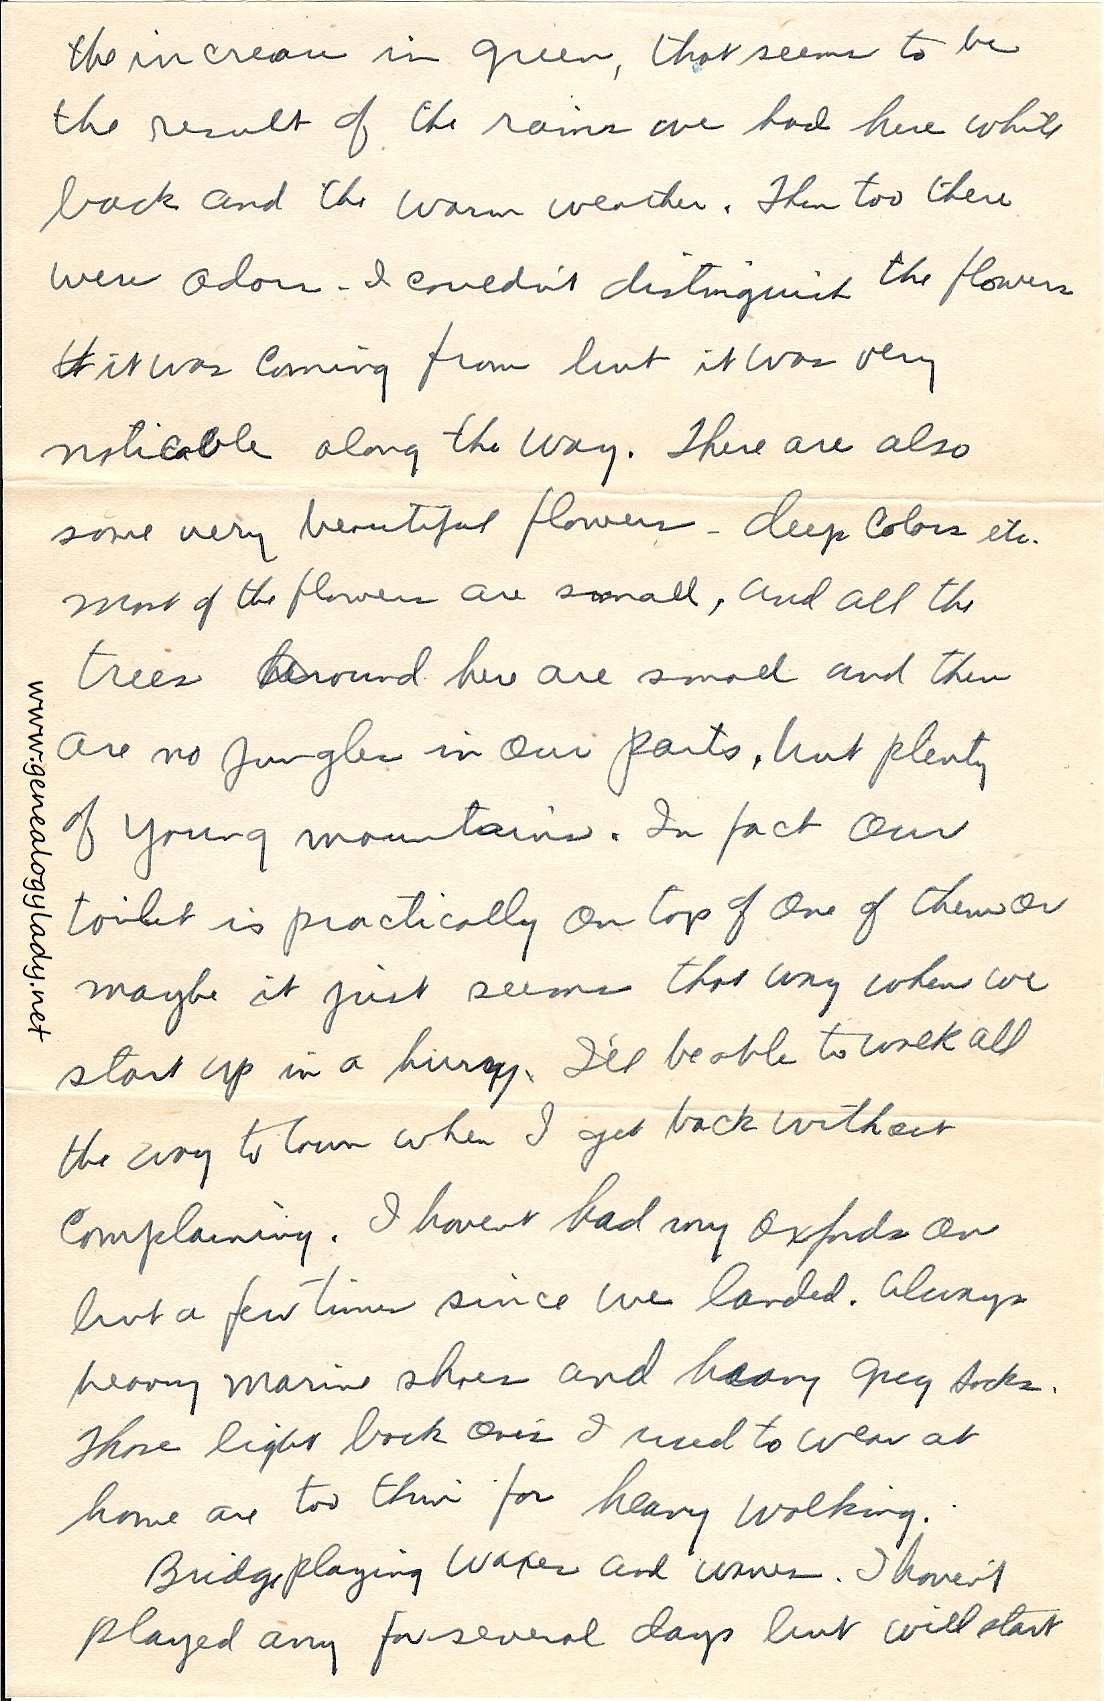 the increase in green, that seems to be
the result of the rains we had here while
back and the warm weather. Then too there
were odors - I couldn't distinguish the flowers
it was coming from but it was very
noticable along the way. There are also
some very beautiful flowers - deep colors etc.
most of the flowers are small, and all the
trees around here are small and there
are no jungles in our parts, but plenty
of young mountains. In fact our
toilet is practically on top of one of them or
maybe it just seems that way when we
start up in a hurry. I'll be able to walk all
the way to town when I get back without
complaining. I havent had my oxfords on
but a few times since we landed. Always
heavy marine shoes and heavy grey socks.
Those light sock ones I used to wear at
home are too thin for heavy walking.
Bridge playing waxes and wanes. I haven't
played any for several days but will start
www.genealogylady.net